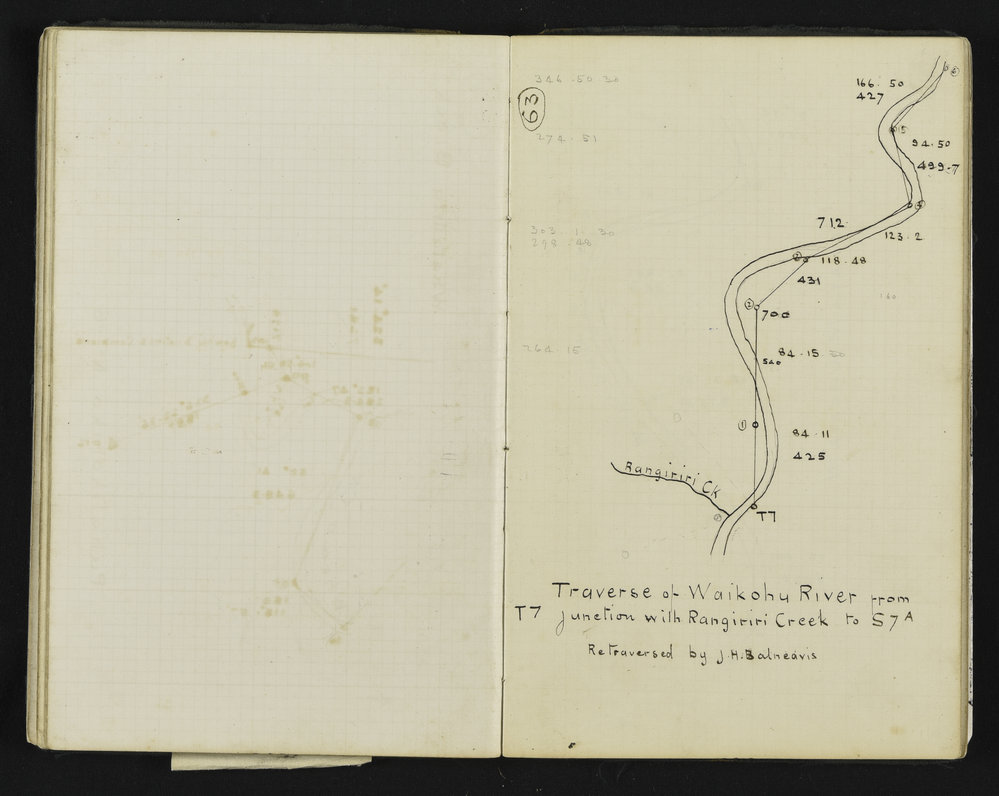 346 . 50 30
63
274 . 51
303 . 1 . 30
298 . 48
264 . 15
166 . 50
427
6
5
94 . 50
499.7
4
712
123 . 2
3
118 . 48
431
2
700
160
84 . 15 30
540
1
84 . 11
425
Rangiriri Ck
T7
Traverse of Waikohu River from
T7 junction with Rangiriri Creek to S7A
Retraversed by J.H.Balneavis